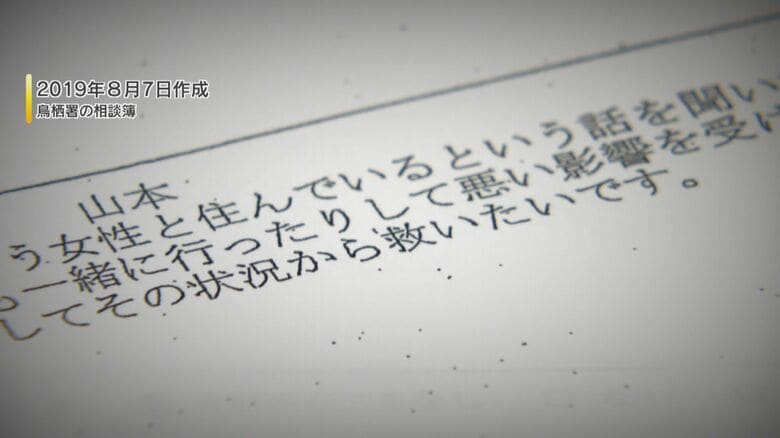 2019年8月7日作成
鳥栖署の相談簿
山本
う女性と住んでいるという話を聞い
一緒に行ったりして悪い影響を受け
してその状況から救いたいです。